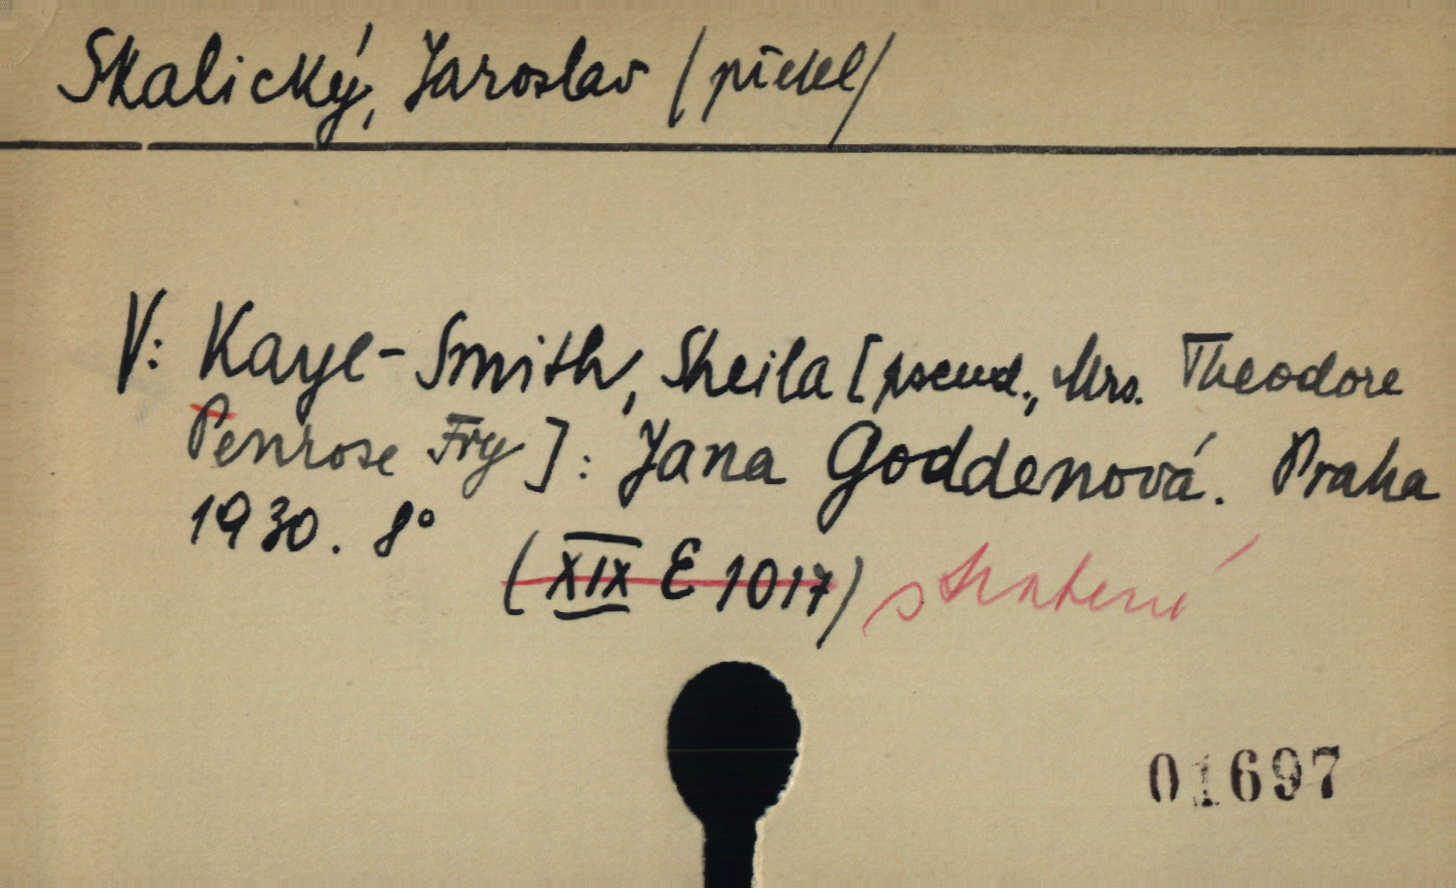 Skalický, Jaroslav /překl/
V: Kaye-Smith, Sheila [pseud., Mrs. Theodore
Penrose Fry]: Jana Goddenová. Praha
1930. 8°
(XIX E 1017) stratené
01697